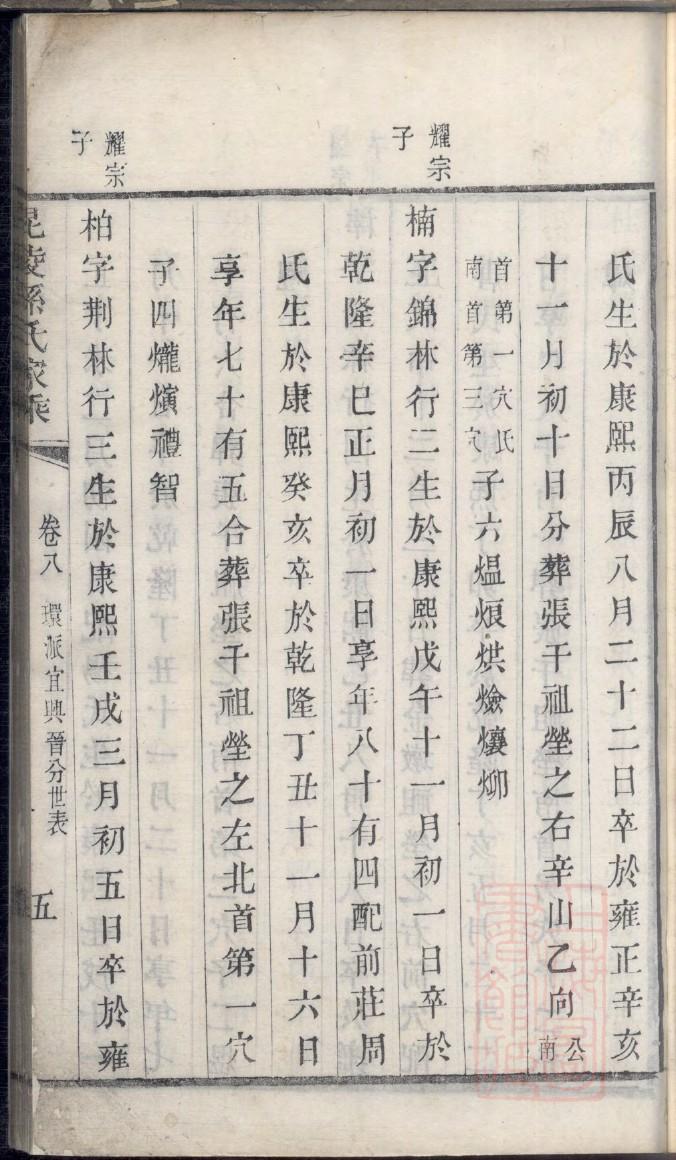 氏生於康熙丙辰八月二十二日卒於雍正辛亥
十一月初十日分葬張干祖塋之右辛山乙向公南
首第一穴氏南首第三穴子六熅烺烘㷿爙𤇢
耀宗子
楠字錦林行二生於康熙戊午十一月初一日卒於
乾隆辛巳正月初一日享年八十有四配前莊周
氏生於康熙癸亥卒於乾隆丁丑十一月十六日
享年七十有五合葬張干祖塋之左北首第一穴
子四爖熿禮智
耀宗子
柏字荆林行三生於康熙壬戌三月初五日卒於雍
毘陵孫氏家乘
卷八 環派宜興晉分世表
五